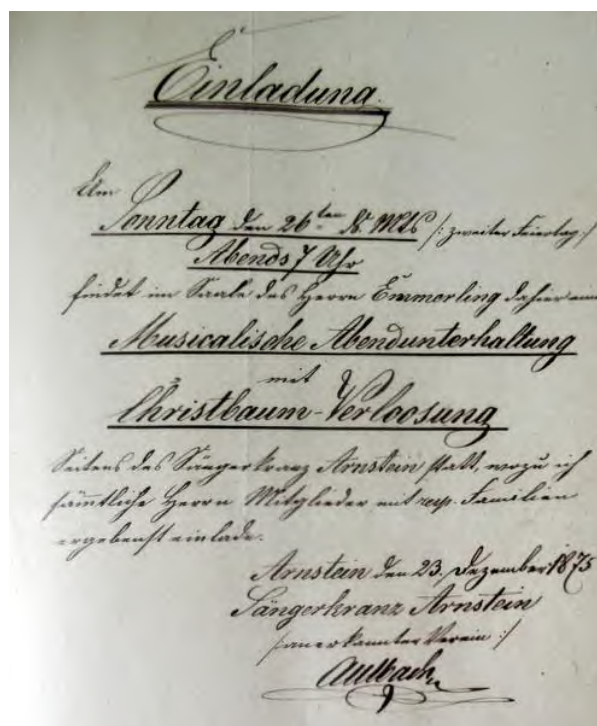 Einladung.
Am
Sonntag den 26ten ds. Mts /: zweiter Feiertag :/
Abends 7 Uhr
findet im Saale des Herrn Emmerling dahier eine
Musicalische Abendunterhaltung
mit
Christbaum-Verloosung
Seitens des Sängerkranz Arnstein statt, wozu ich
sämmtliche Herrn Mitglieder mit resp. Familien
ergebenst einlade.
Arnstein den 23. Dezember 1875
Sängerkranz Arnstein
/: anerkannter Verein :/
Aulbach